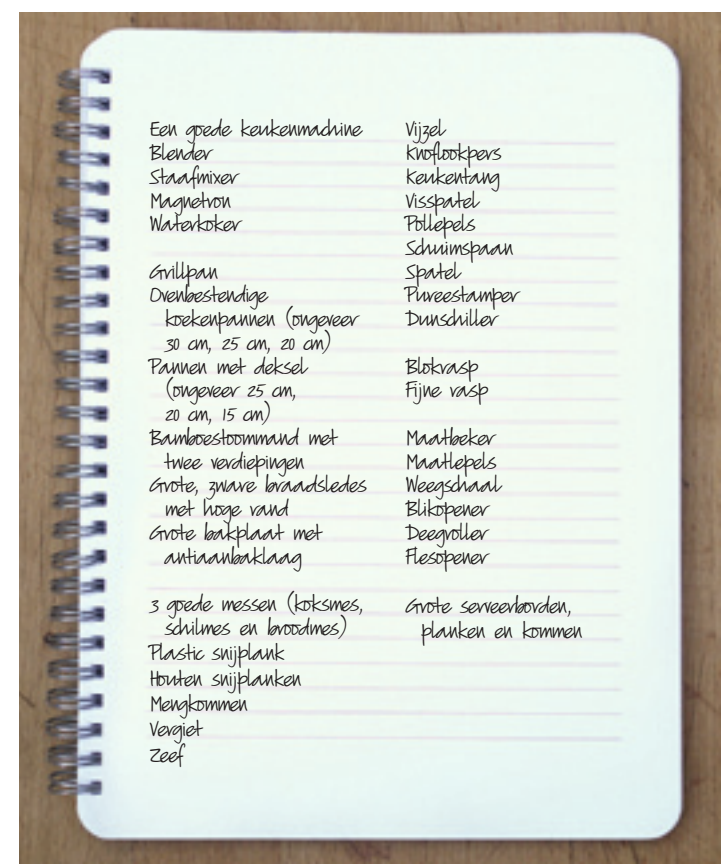 Een goede keukenmachine
Blender
Staafmixer
Magnetron
Waterkoker
Grillpan
Ovenbestendige
koekenpannen (ongeveer
30 cm, 25 cm, 20 cm)
Pannen met deksel
(ongeveer 25 cm,
20 cm, 15 cm)
Bamboestoommand met
twee verdiepingen
Grote, zware braadsledes
met hoge rand
Grote bakplaat met
antiaanbaklaag
3 goede messen (koksmes,
schilmes en broodmes)
Plastic snijplank
Houten snijplanken
Mengkommen
Vergiet
Zeef
Vijzel
Knoflookpers
Keukentang
Visspatel
Pollepels
Schuimspaan
Spatel
Pureestamper
Dunschiller
Blokrasp
Fijne rasp
Maatbeker
Maatlepels
Weegschaal
Blikopener
Deegroller
Flesopener
Grote serveerborden,
planken en kommen